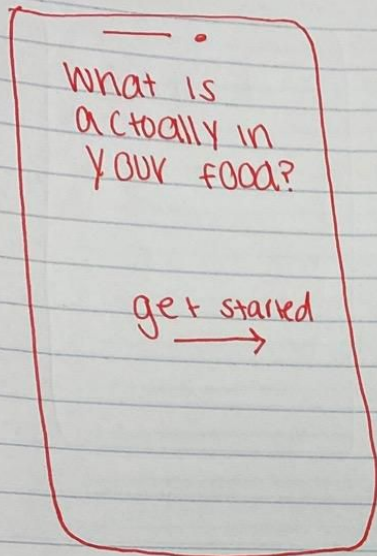 What is
actually in
your food?
get started